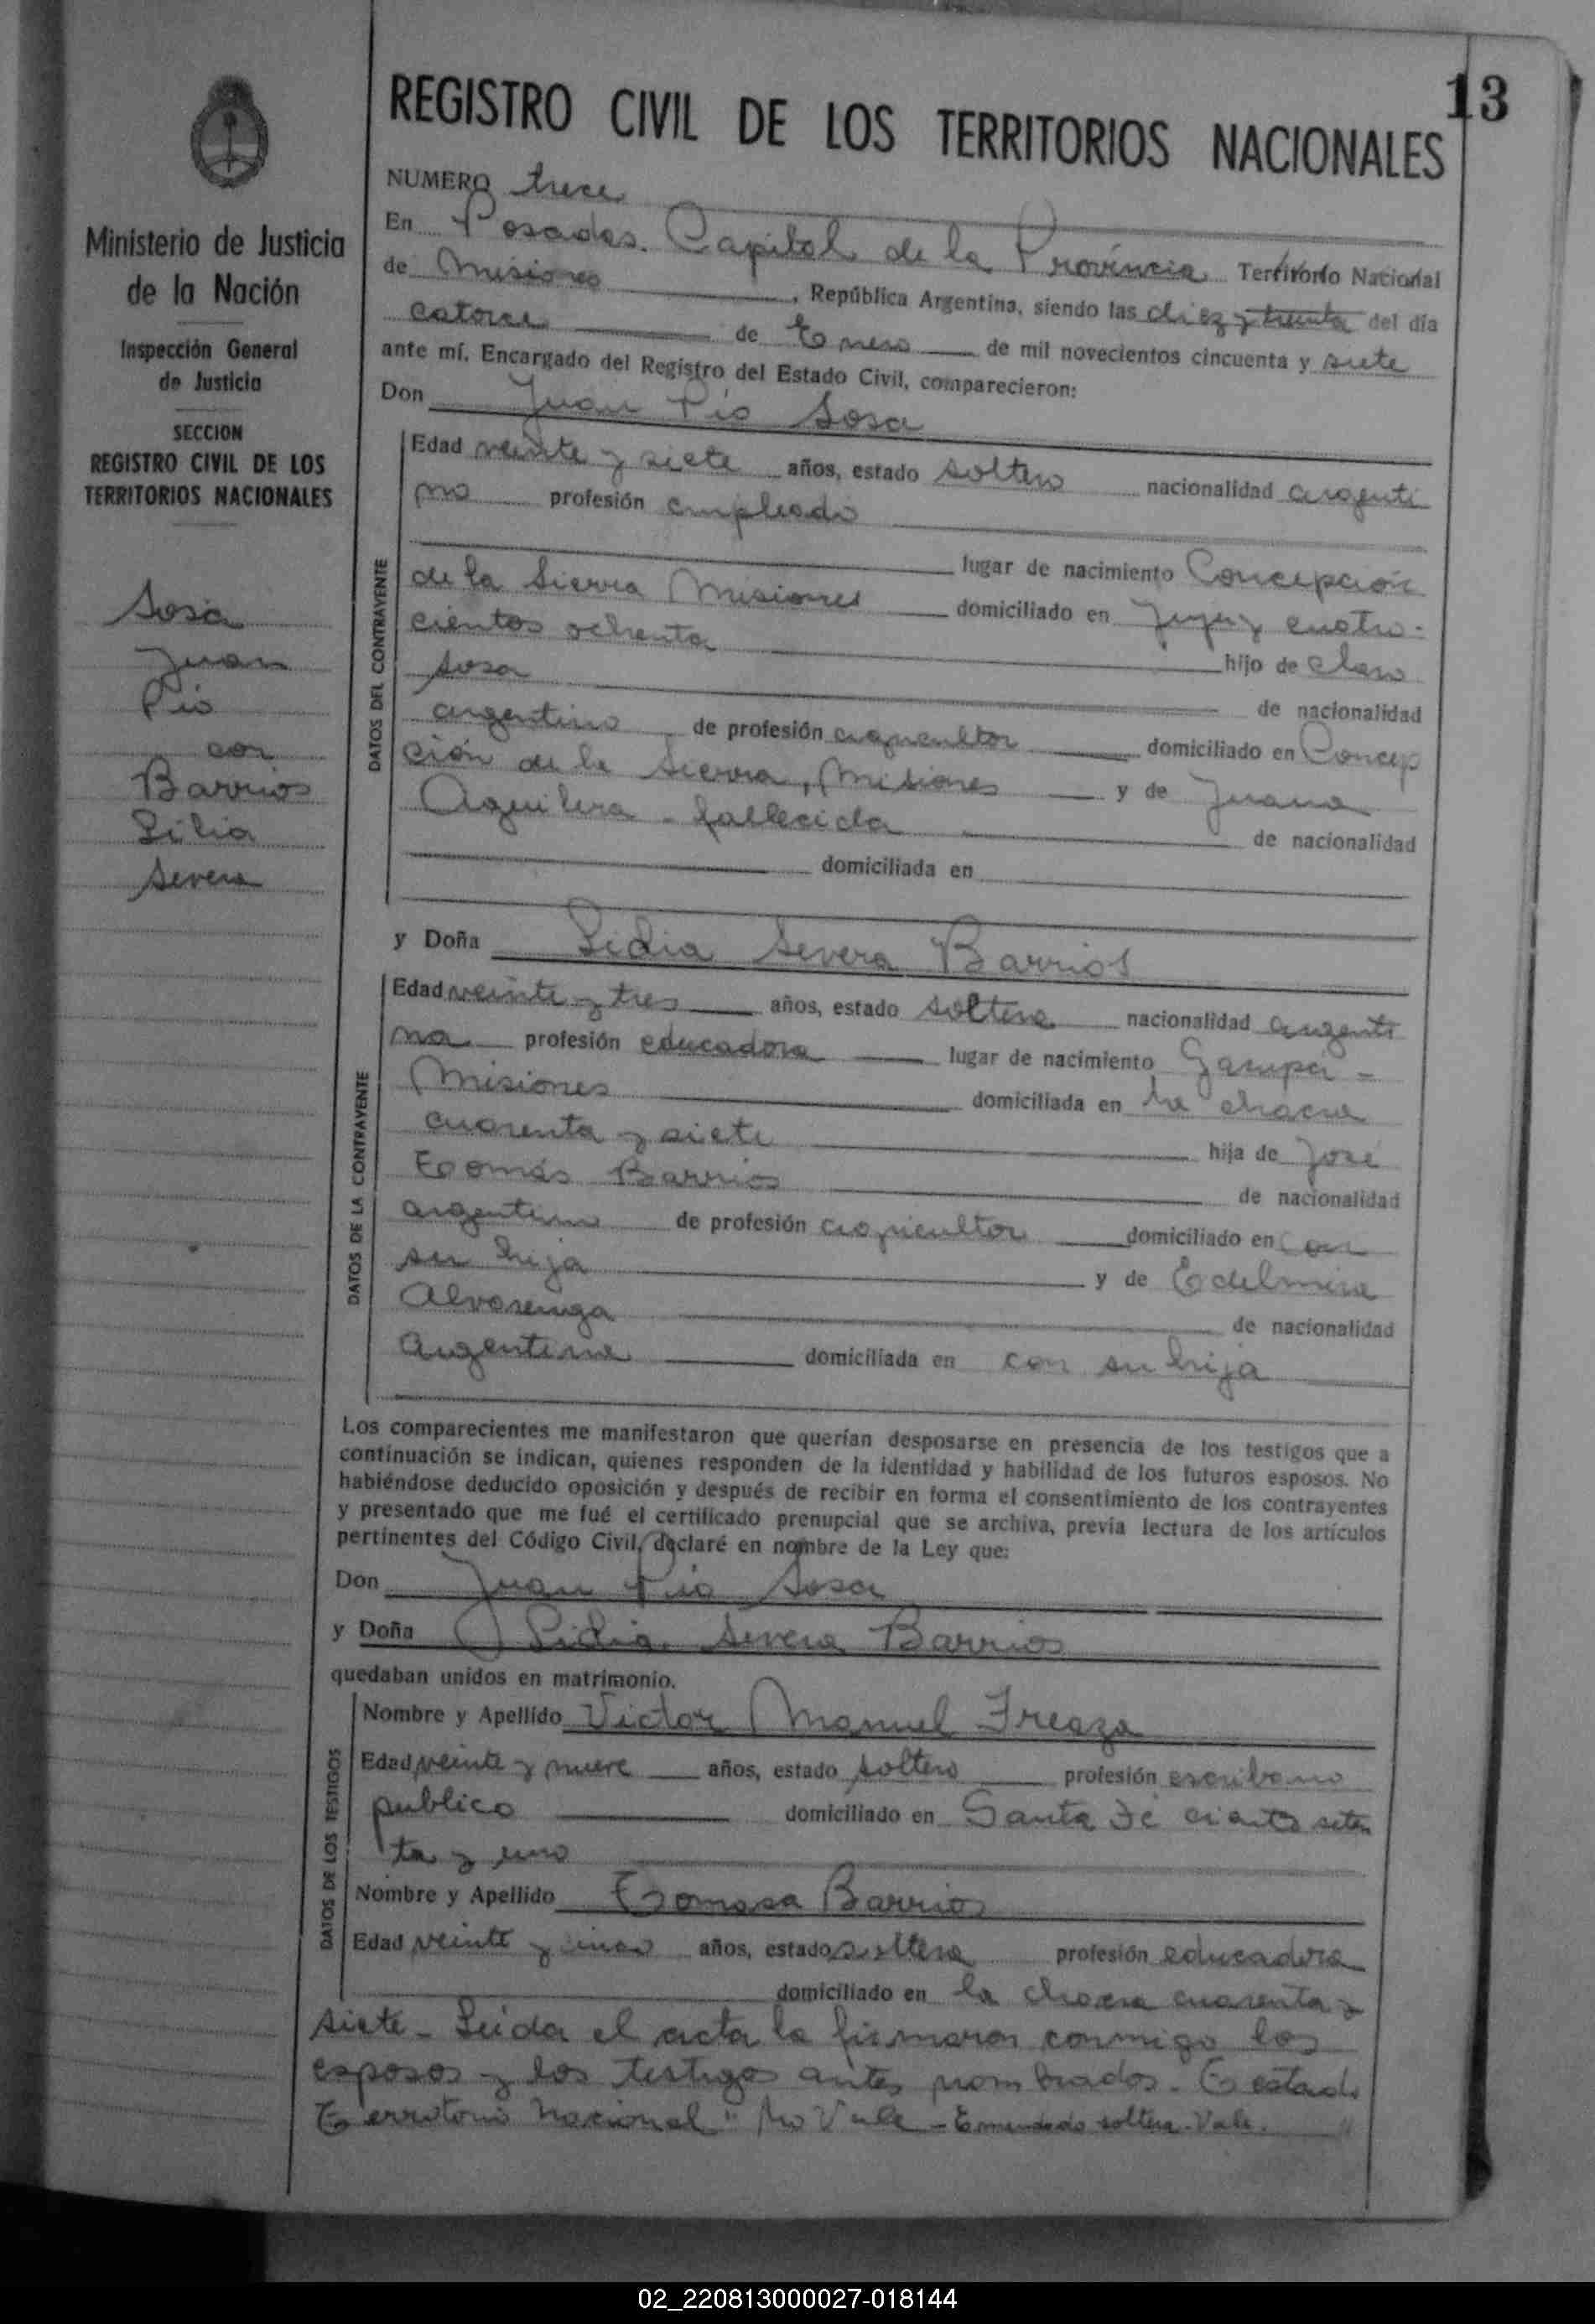 13
REGISTRO CIVIL DE LOS TERRITORIOS NACIONALES
Ministerio de Justicia
de la Nación
Inspección General
de Justicia
SECCION
REGISTRO CIVIL DE LOS
TERRITORIOS NACIONALES
Sosa
Juan
Pío
con
Barrios
Lidia
Severa
NUMERO trece
En Posadas. Capital de la Provincia Territorio Nacional
de Misiones, República Argentina, siendo las diez y treinta del día
catorce de Enero de mil novecientos cincuenta y siete
ante mí, Encargado del Registro del Estado Civil, comparecieron:
Don Juan Pío Sosa
DATOS DEL CONTRAYENTE
Edad veinte y siete años, estado soltero nacionalidad argenti
no profesión empleado
lugar de nacimiento Concepción
de la Sierra Misiones domiciliado en Jujuy cuatro-
cientos ochenta hijo de Claro
Sosa de nacionalidad
argentino de profesión agricultor domiciliado en Concep
ción de la Sierra, Misiones y de Juana
Aguilera - fallecida de nacionalidad
domiciliada en
y Doña Lidia Severa Barrios
DATOS DE LA CONTRAYENTE
Edad veinte y tres años, estado soltera nacionalidad argenti
na profesión educadora lugar de nacimiento Garupá -
Misiones domiciliada en la chacra
cuarenta y siete hija de José
Tomás Barrios de nacionalidad
argentino de profesión agricultor domiciliado en con
su hija y de Edelmira
Alvarenga de nacionalidad
argentina domiciliada en con su hija
Los comparecientes me manifestaron que querían desposarse en presencia de los testigos que a
continuación se indican, quienes responden de la identidad y habilidad de los futuros esposos. No
habiéndose deducido oposición y después de recibir en forma el consentimiento de los contrayentes
y presentado que me fué el certificado prenupcial que se archiva, previa lectura de los artículos
pertinentes del Código Civil, declaré en nombre de la Ley que:
Don Juan Pío Sosa
y Doña Lidia Severa Barrios
quedaban unidos en matrimonio.
DATOS DE LOS TESTIGOS
Nombre y Apellido Victor Manuel Freaza
Edad veinte y nueve años, estado soltero profesión escribano
publico domiciliado en Santa Fé ciento seten
ta y uno
Nombre y Apellido Tomasa Barrios
Edad veinte y cinco años, estado soltera profesión educadora
domiciliado en la chacra cuarenta y
siete - Leída el acta la firmaron conmigo los
esposos y los testigos antes nombrados. Testado
Territorio Nacional" No Vale - Enmendado soltera - Vale.
02_220813000027-018144